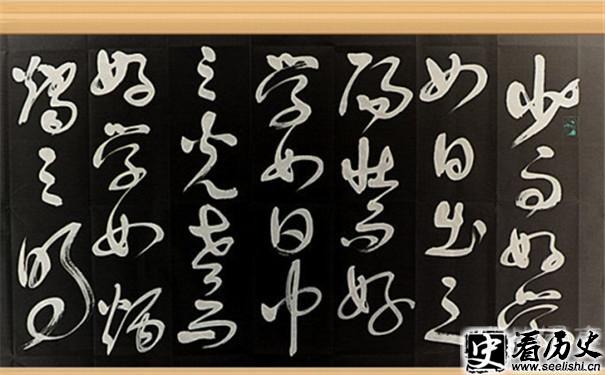 少而好学
如日出之
阳壮而好
学如日中
之光老而
好学如炳
烛之明
史 看历史
www.seelishi.cn